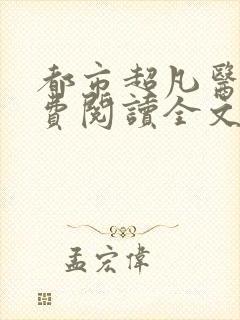 都市超凡醫
費閱讀全文
孟宏偉